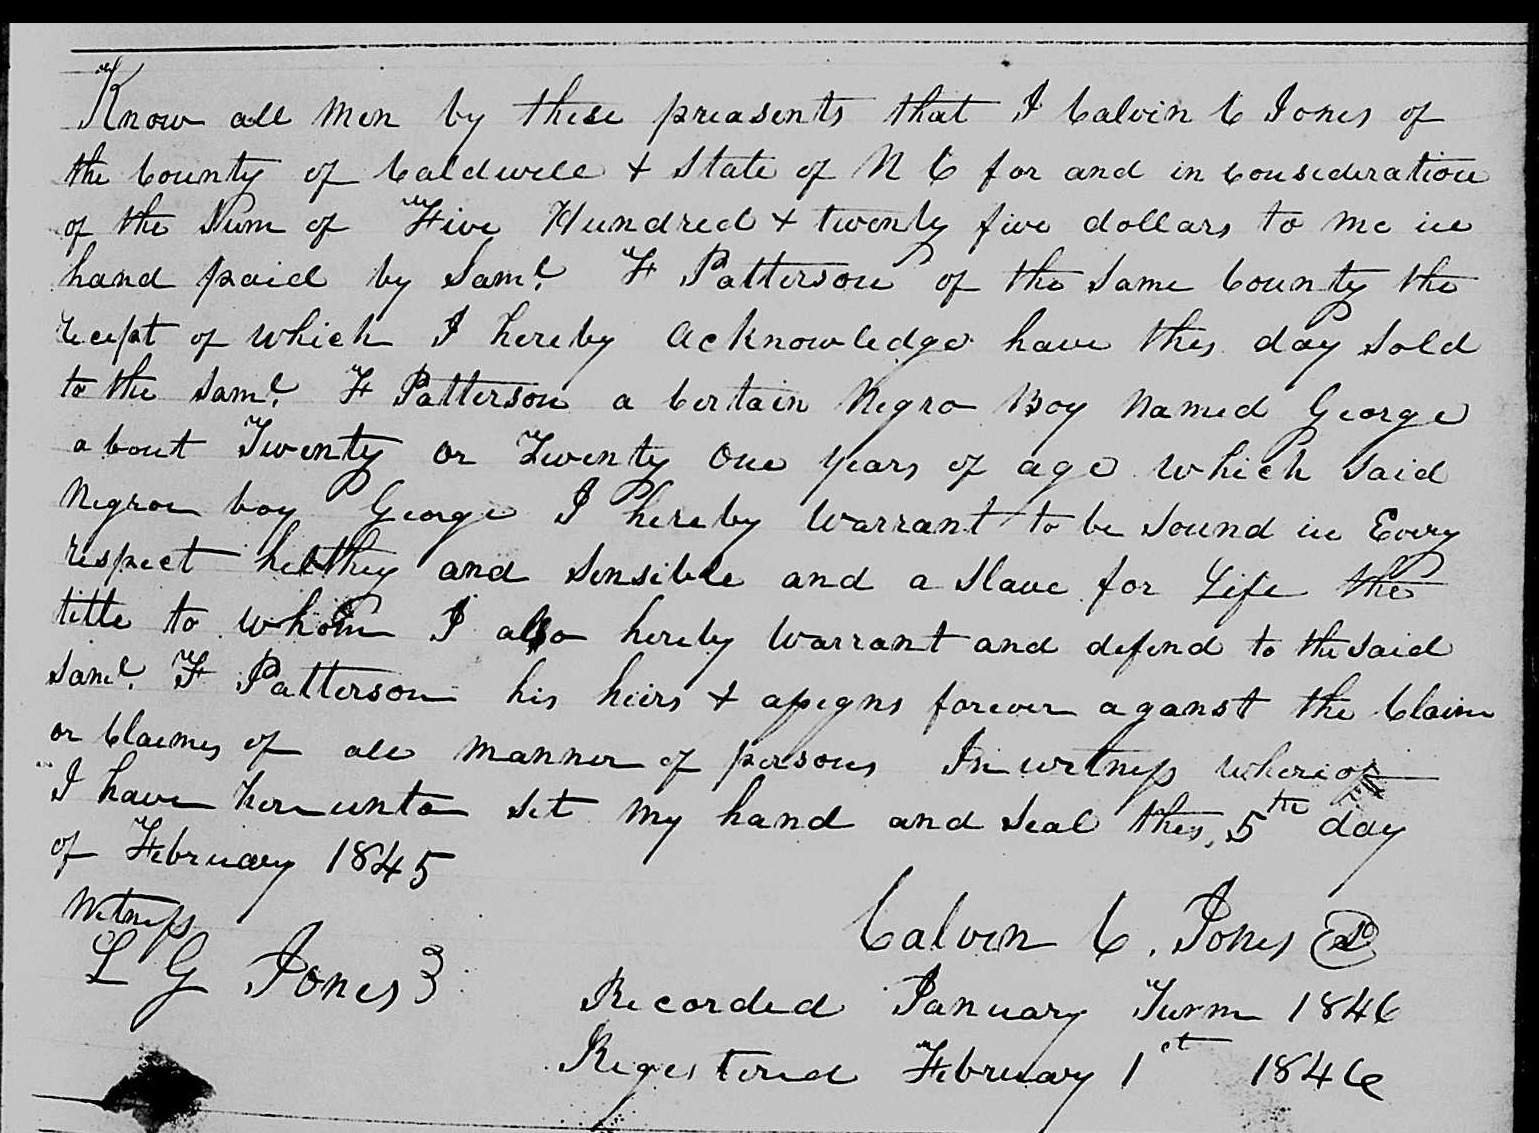 Know all men by these preasents that I Calvin C Jones of
the County of Caldwell + State of N C for and in consideration
of the Sum of Five Hundred + twenty five dollars to me in
hand paid by Saml. F Patterson of the same County the
receipt of which I hereby acknowledge have this day sold
to the Saml. F Patterson a Certain Negro Boy Named George
about Twenty or Twenty One years of age which said
Negroe boy George I hereby warrant to be sound in Every
respect helthey and sensible and a slave for Life the
title to whom I also hereby warrant and defend to the said
Saml. F Patterson his heirs + assigns forever aganst the Claim
or Claimes of all manner of persons In witness whereof
I have hereunto set my hand and seal this 5th day
of February 1845
Witness
Calvin C. Jones
L G Jones
Recorded January Turm 1846
Regestered February 1st 1846